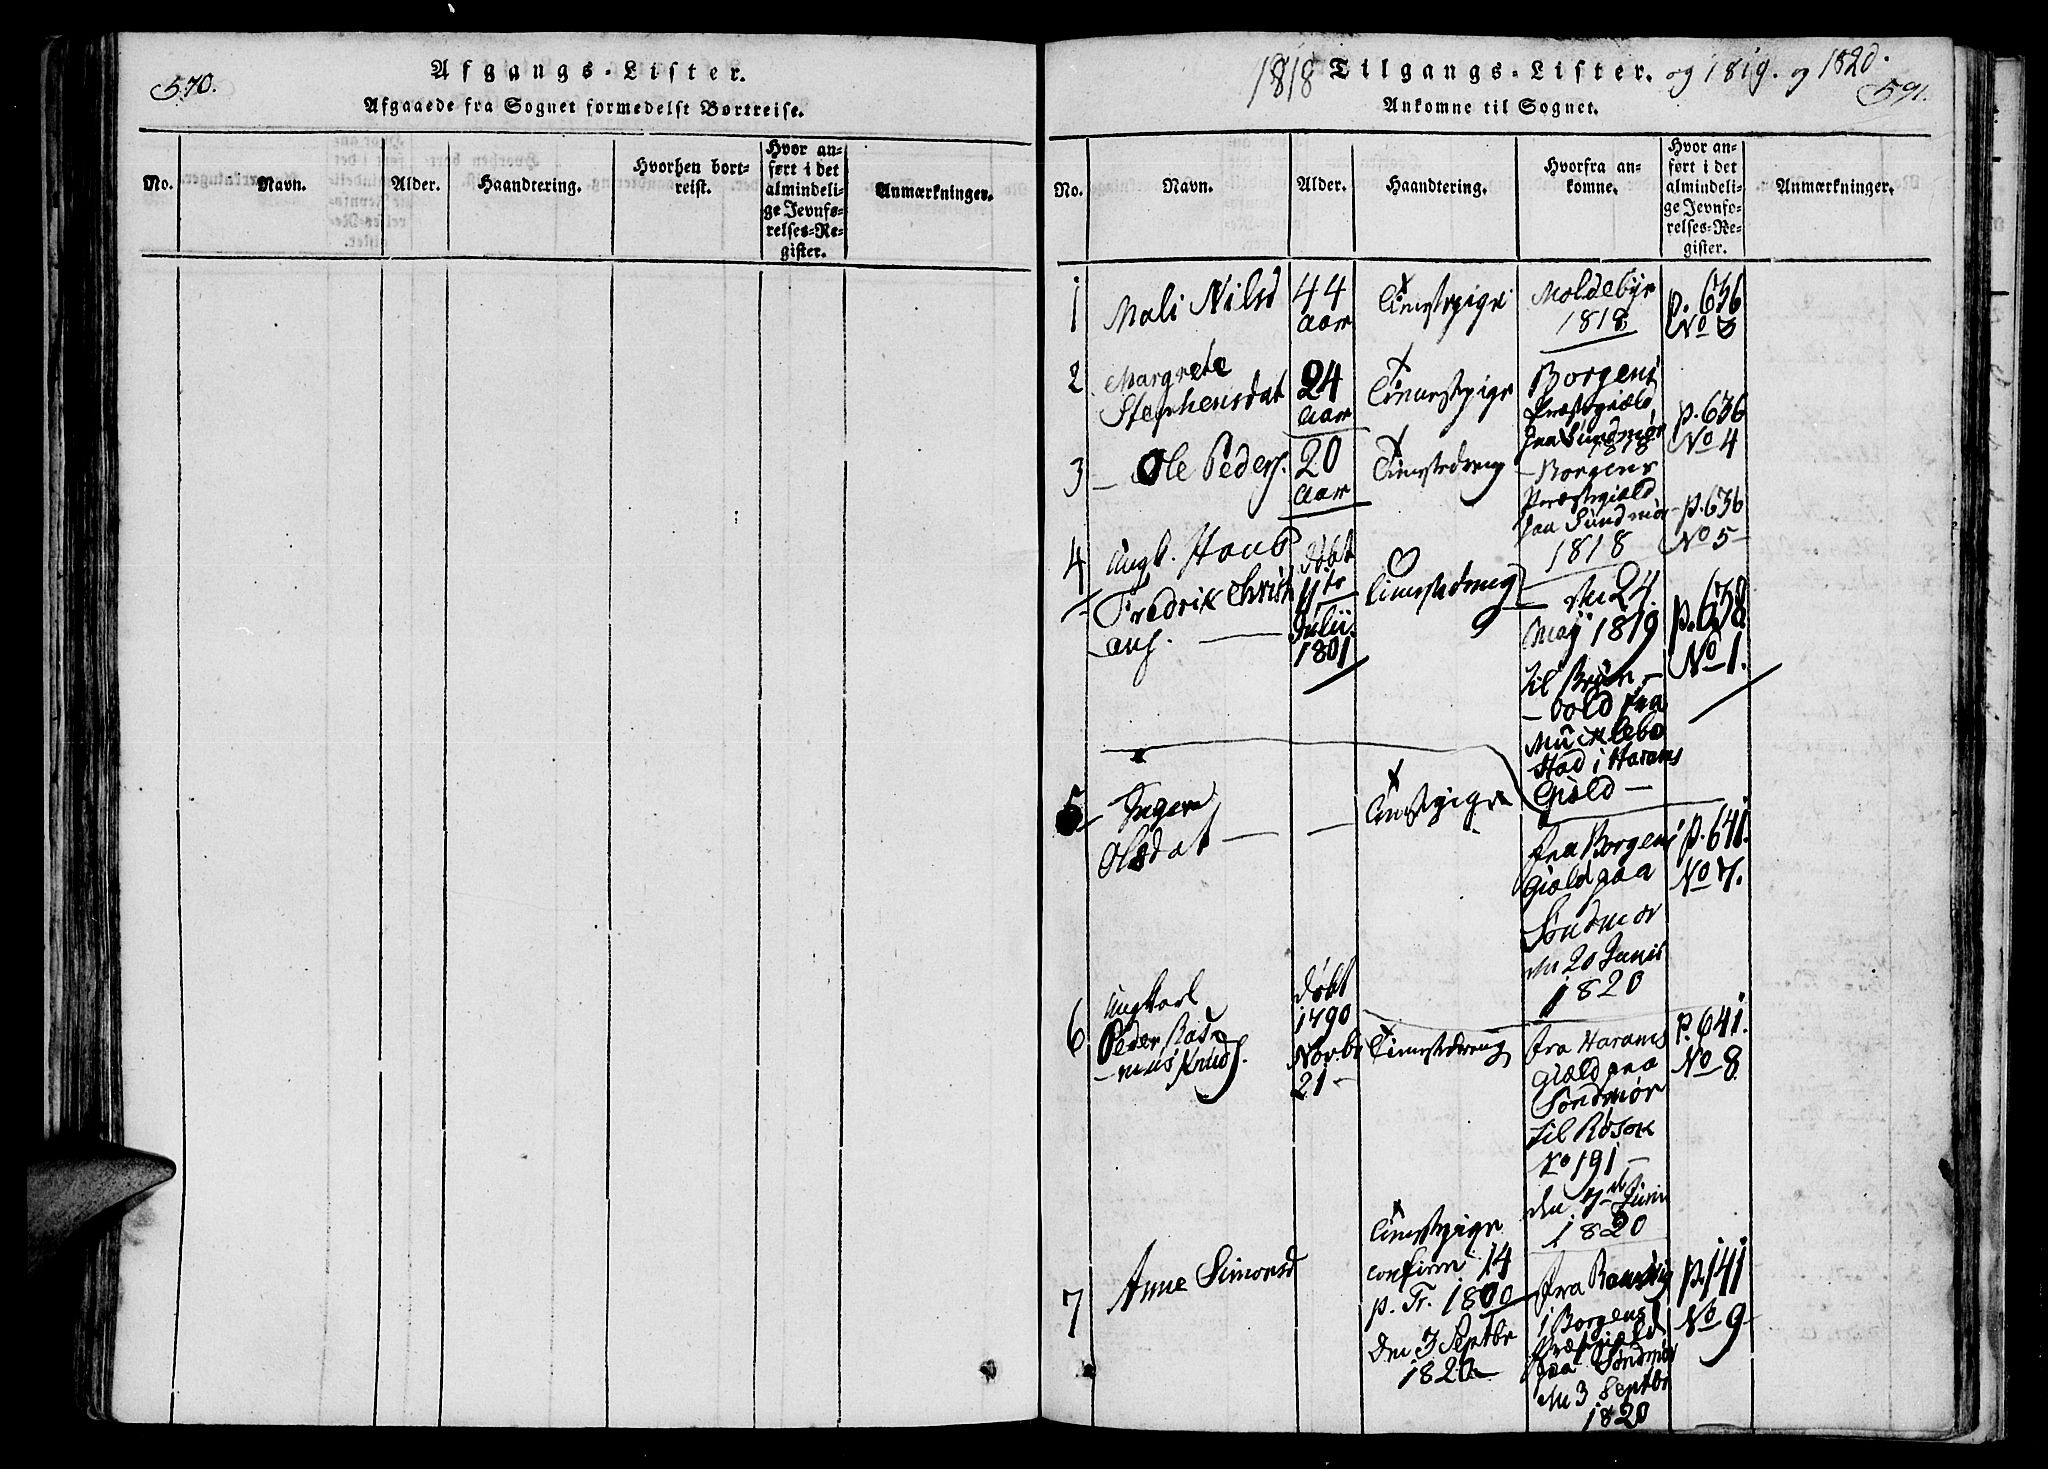 570.
Afgangs-Lister.
Afgaaede fra Sognet formedelst Bortreise.
No.
Navn.
Alder.
Haandtering.
Hvorhen bort-
reist.
Hvor an-
ført i det
almindeli-
ge Jevnfø-
relses-Re-
gister.
Anmærkninger.
1818 Tilgangs-Lister. og 1819. og 1820.
591.
Ankomne til Sognet.
No.
Navn.
Alder.
Haandtering.
Hvorfra an-
komne.
Hvor an-
ført i det
almindeli-
ge Jevnfø-
relses-Re-
gister.
Anmærkninger.
1
Mali Nilsd
44
aar
Tienestepige
Moldebye
1818
p. 636
No 3
2
Margrete
Stephensdat
24
aar
Tienestepige
Borgens
Præstegiæld
paa Sundmør
1818
p. 636
No 4
3
Ole Peders.
20
aar
Tienestedreng
Borgens
Præstegiæld
paa Sundmør
1818
p. 636
No 5
4
Ungk.
Fredrik Christi
ans.
døbt
Julii
1801
Tienestedreng
den 24
Maji 1819
til
-vold fra
Mücklebo
stad i Harams
Giæld
p. 638.
No 1.
5
Ingeri
Olsdat
Tienestepige
fra Borgens
Giæld paa
Søndmør
den 20 Junii
1820
p. 641.
No 7.
6
Ungkarl
Peder Ras
-mus Knuds.
døbt
1790
Novbr
21
Tienestedreng
fra Harams
Giæld paa
Søndmør
til Røsok
No 191
den 7de Junii
1820
p. 641.
No 8
7
Anne Simonsd
Tienestepige
confirm 14
p. Tr. 1800
den 3 Septbr
1820
fra
i Borgens
Præstegiæld
paa Søndmør
den 3 Septbr
1820
p. 141
No 9